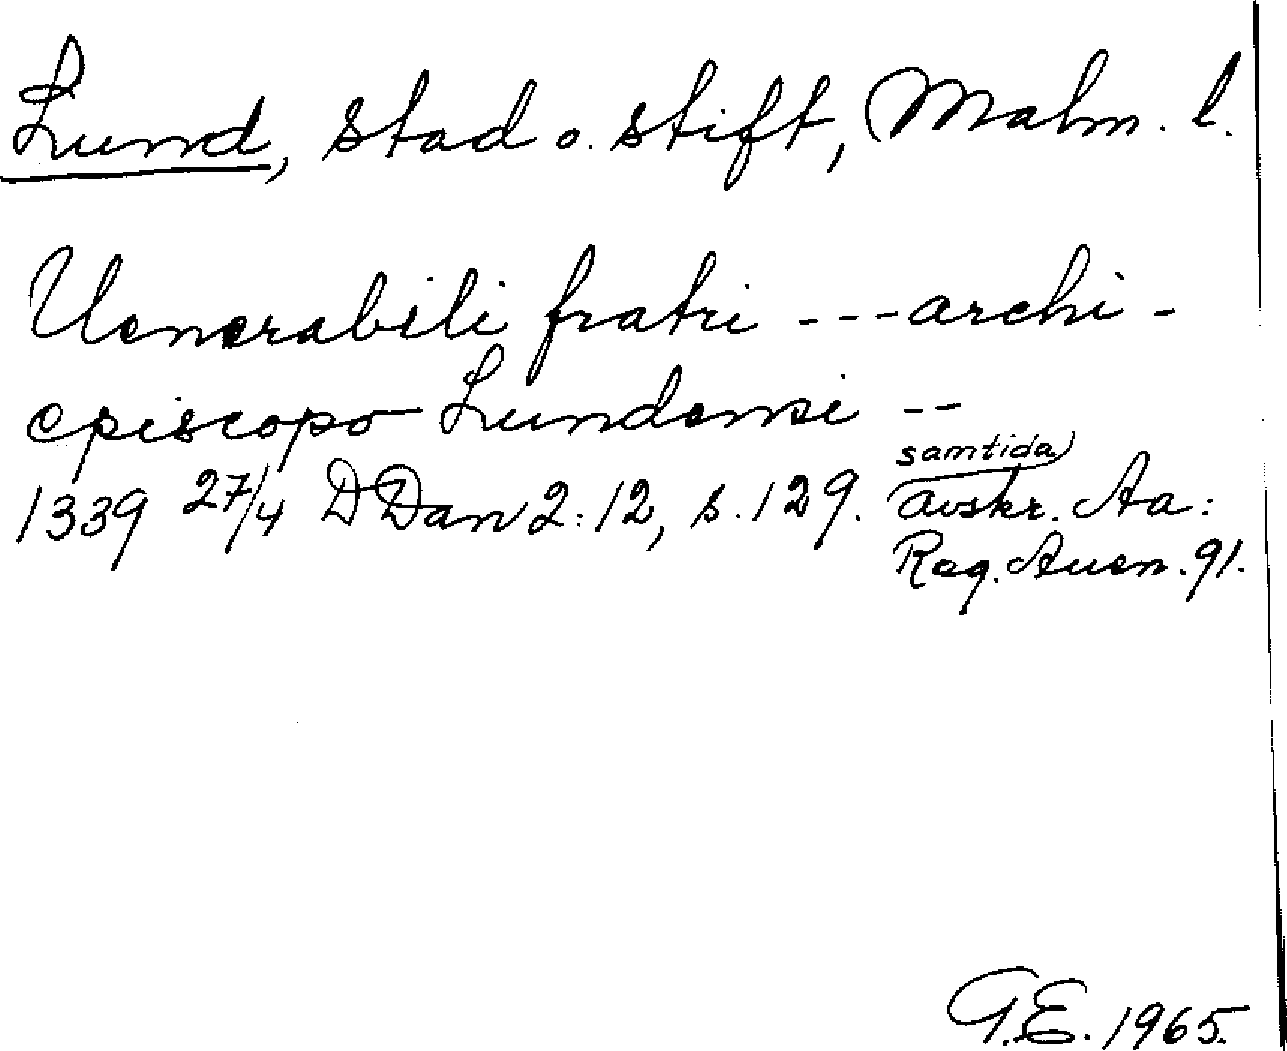 Lund, stad o. stift, Malm. l.
Uenerabili fratri --- archi-
episcopo Lundensi --
1339 27/4 DDan 2:12, s. 129. samtida avskr. Aa:
Reg. Auen. 91.
G.E. 1965.